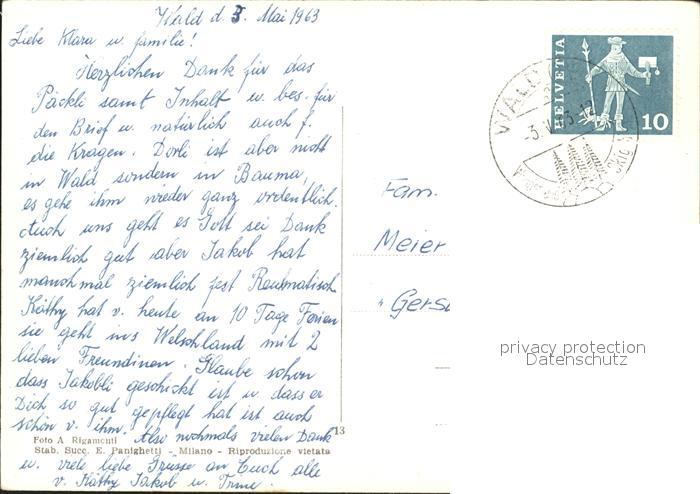 Wald d. 3. Mai 1963
Liebe Klara u. familie!
Herzlichen Dank für das
Päckli samt Inhalt u. bes. für
den Brief u. natürlich auch f.
die Kragen. Dorli ist aber nicht
in Wald sondern in Bauma,
es gehe ihm wieder ganz ordentlich.
Auch uns geht es Gott sei Dank
ziemlich gut aber Jakob hat
manchmal ziemlich fest Reumatisch
Käthy hat v. heute an 10 Tage Ferien
sie geht ins Welschland mit 2
lieben Freundinen. Glaube schon
dass Jakobli geschickt ist u. dass er
Dich so gut gepflegt hat ist auch
schön v. ihm. Also nochmals vielen Dank
u. viele liebe Grüsse an Euch alle
v. Käthy Jakob u. Irme.
13
Foto A. Rigamonti
Stab. Succ. E. Panighetti - Milano - Riproduzione vietata
HELVETIA
10
WALD
-3. V. 63-
Fam.
Meier
" Gers
privacy protection
Datenschutz